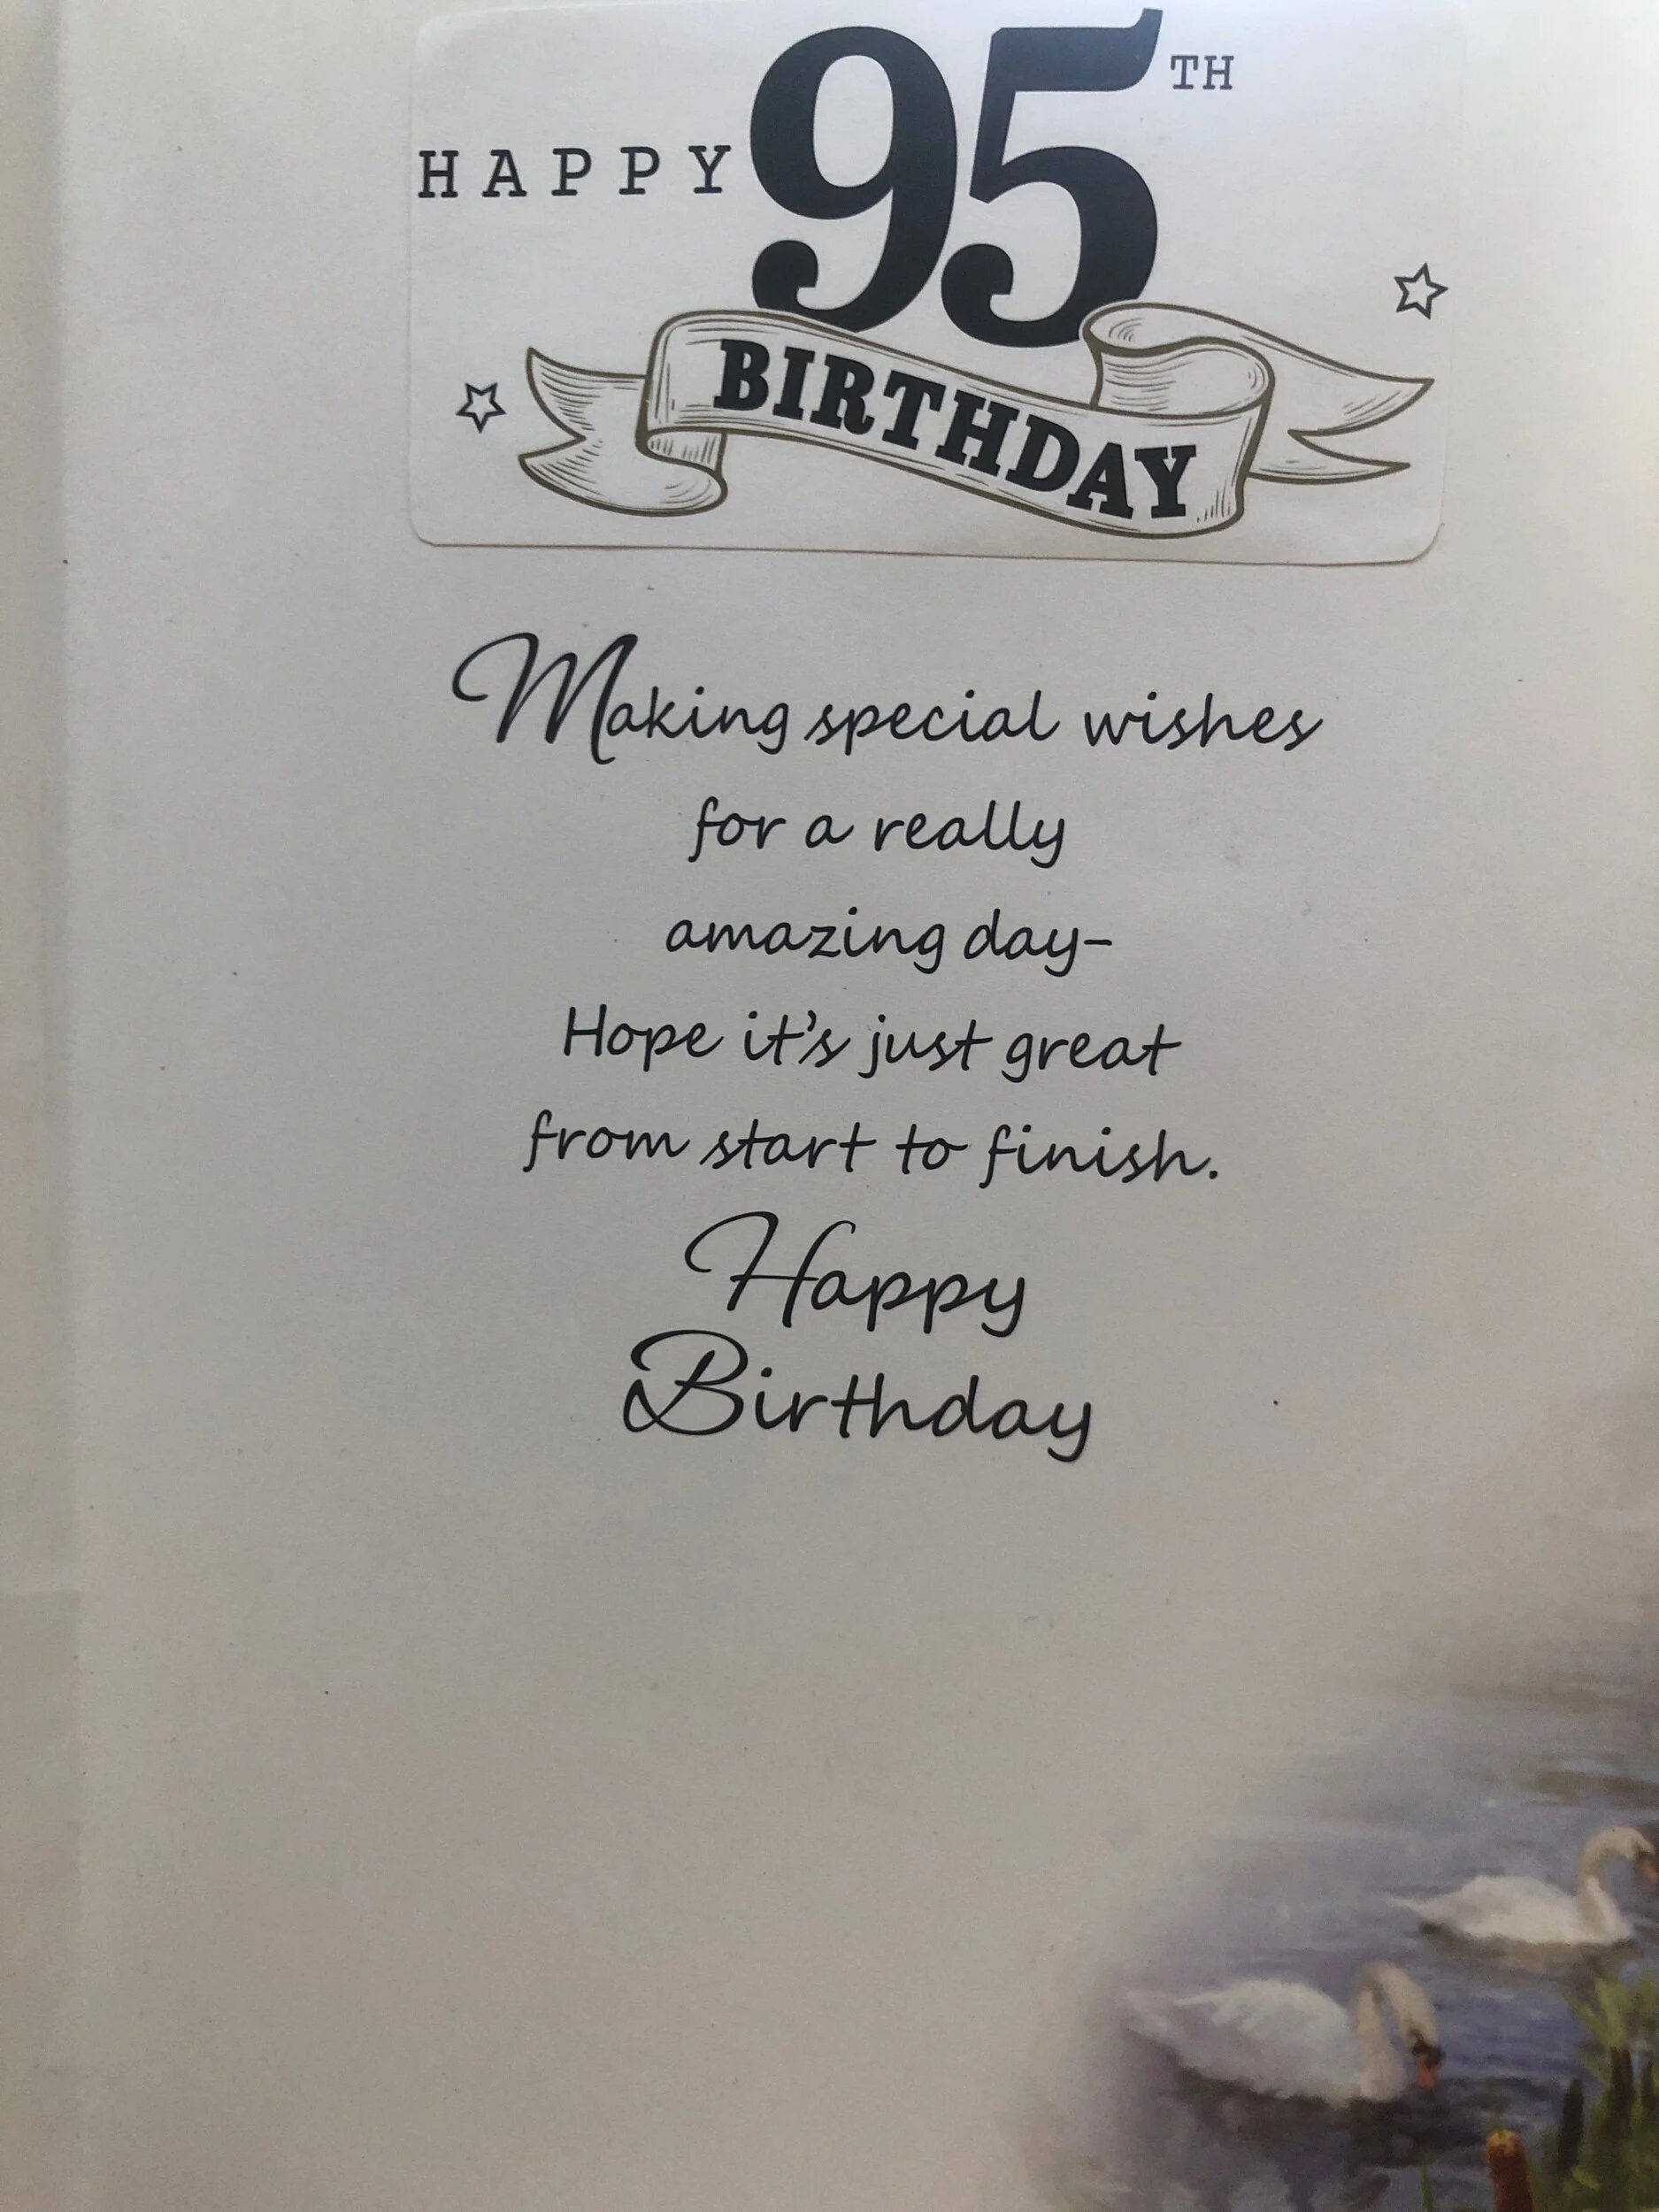 HAPPY 95TH
BIRTHDAY
Making special wishes
for a really
amazing day-
Hope it's just great
from start to finish.
Happy
Birthday